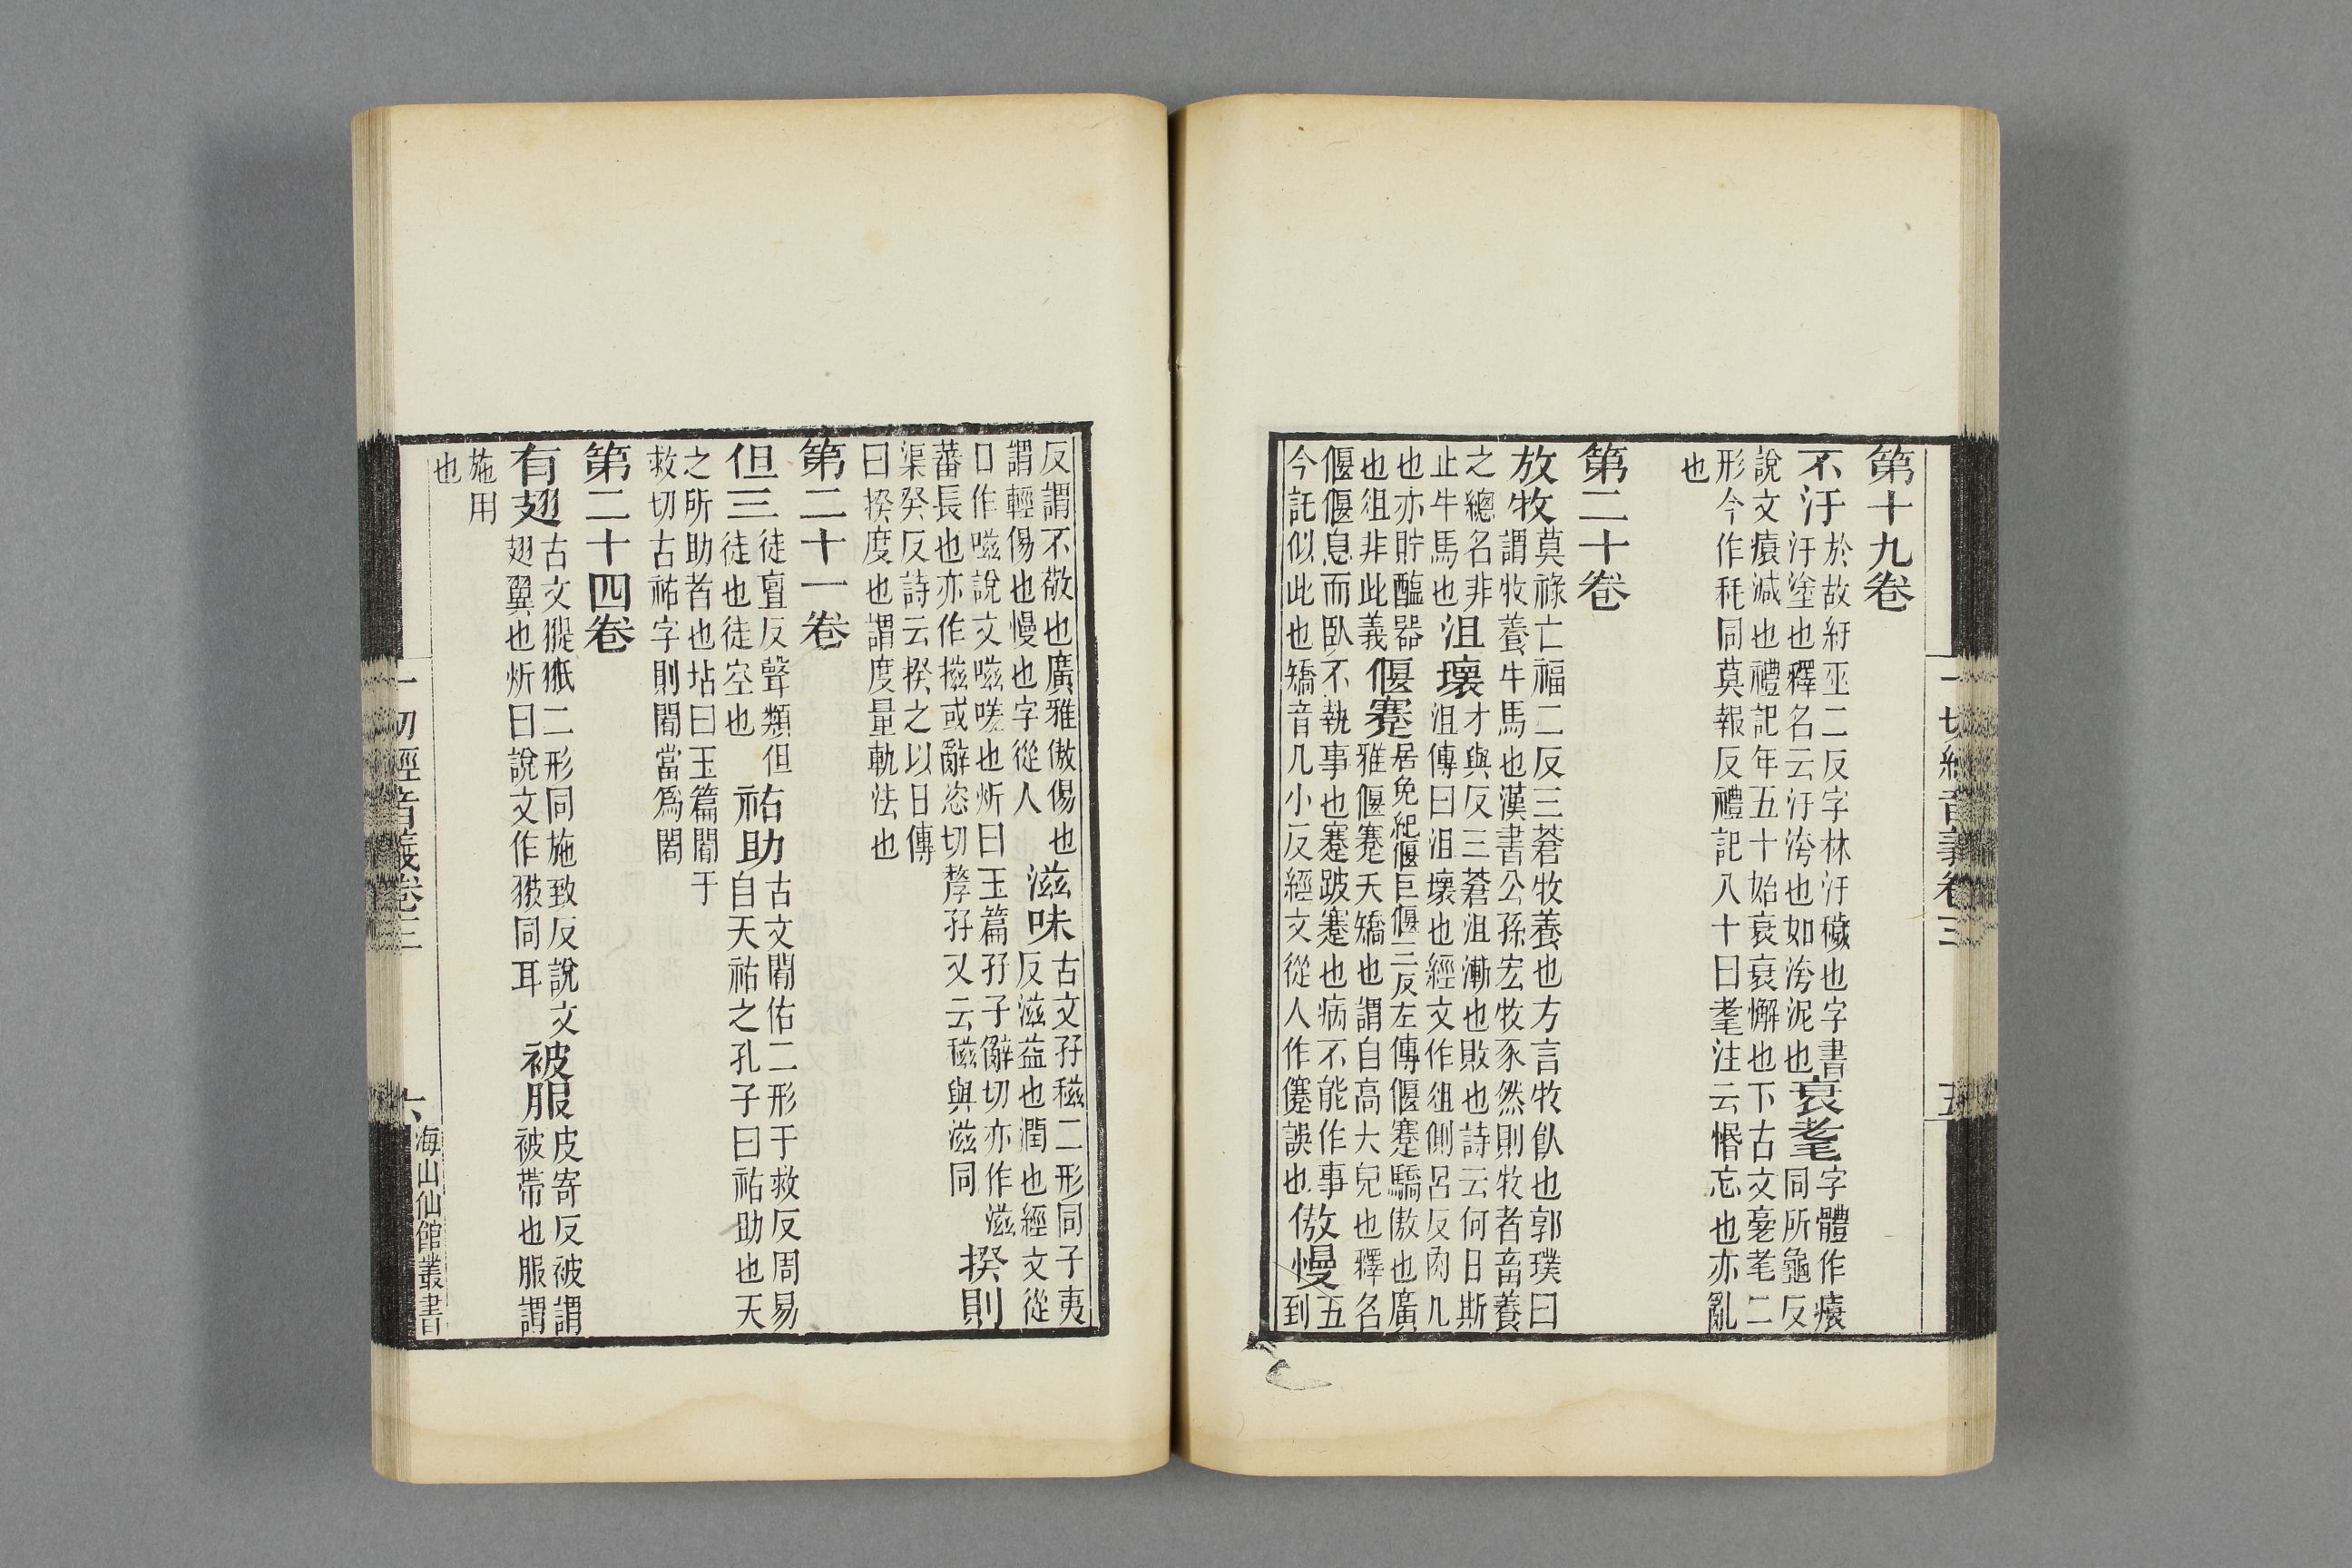 第十九卷
不汙於故紆巫二反字林汙穢也字書
汙塗也釋名云汙洿也如洿泥也
衰耄字體作㿈
同所龜反
說文㿈減也禮記年五十始衰衰懈也下古文耄耄二
形今作秏同莫報反禮記八十曰耄注云惛忘也亦亂
也
第二十卷
放牧莫祿亡福二反三蒼牧養也方言牧飤也郭璞曰
謂牧養牛馬也漢書公孫宏牧豕然則牧者畜養
之總名非
止牛馬也
沮壞才與反三蒼沮漸也敗也詩云何日斯
沮傳曰沮壞也經文作俎側呂反肉几
也亦貯醢器
也俎非此義
偃蹇居免紀偃巨偃三反左傳偃蹇驕傲也廣
雅偃蹇夭矯也謂自高大皃也釋名
偃偃息而臥不執事也蹇跛蹇也病不能作事
今託似此也矯音几小反經文從人作僊誤也
傲慢五
到
一切經音義卷三
五
反謂不敬也廣雅傲傷也
謂輕傷也慢也字從人
滋味古文孖稵二形同子夷
反滋益也潤也經文從
口作嗞說文嗞嗟也炘曰玉篇孖子辭切亦作滋
蕃長也亦作㨱或辭恣切孳孖又云稵與滋同
揆則
渠癸反詩云揆之以日傳
曰揆度也謂度量軌法也
第二十一卷
但三徒亶反聲類但
徒也徒空也
祐助古文閣佑二形于救反周易
自天祐之孔子曰祐助也天
之所助者也坫曰玉篇閣于
救切古祐字則閣當爲閣
第二十四卷
有翅古文翄䎵二形同施致反說文
翅翼也炘曰說文作翄同耳
被服皮寄反被謂
被帶也服謂
施用
也
一切經音義卷三
六
海山仙館叢書